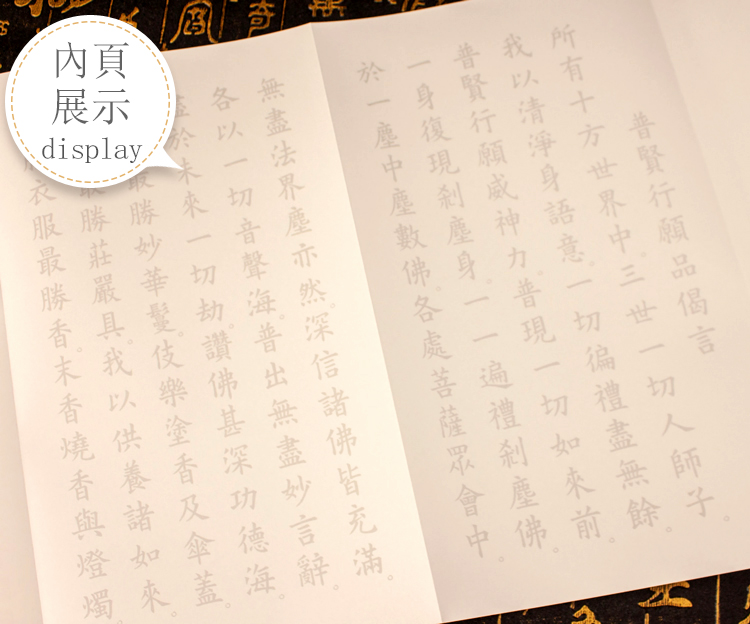 內頁
展示
display
普賢行願品偈言
所有十方世界中。三世一切人師子。
我以清淨身語意。一切徧禮盡無餘。
普賢行願威神力。普現一切如來前。
一身復現剎塵身。一一遍禮剎塵佛。
於一塵中塵數佛。各處菩薩眾會中。
無盡法界塵亦然。深信諸佛皆充滿。
各以一切音聲海。普出無盡妙言辭。
盡於未來一切劫。讚佛甚深功德海。
最勝妙華鬘。伎樂塗香及傘蓋。
最勝莊嚴具。我以供養諸如來。
衣服最勝香。末香燒香與燈燭。